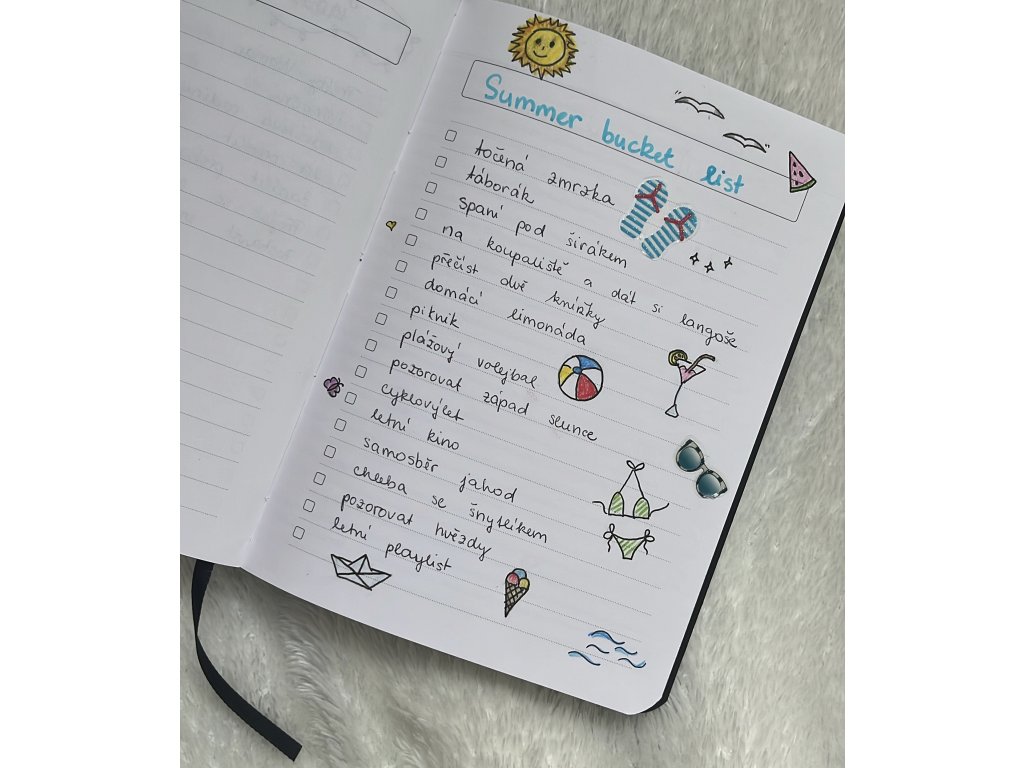 Summer bucket list
točená zmrzka
táborák
spaní pod širákem
na koupaliště a dát si langoše
přečíst dvě knížky
domácí limonáda
piknik
plážový volejbal
pozorovat západ slunce
cyklovýlet
letní kino
samosběr jahod
chleba se šnytlíkem
pozorovat hvězdy
letní playlist